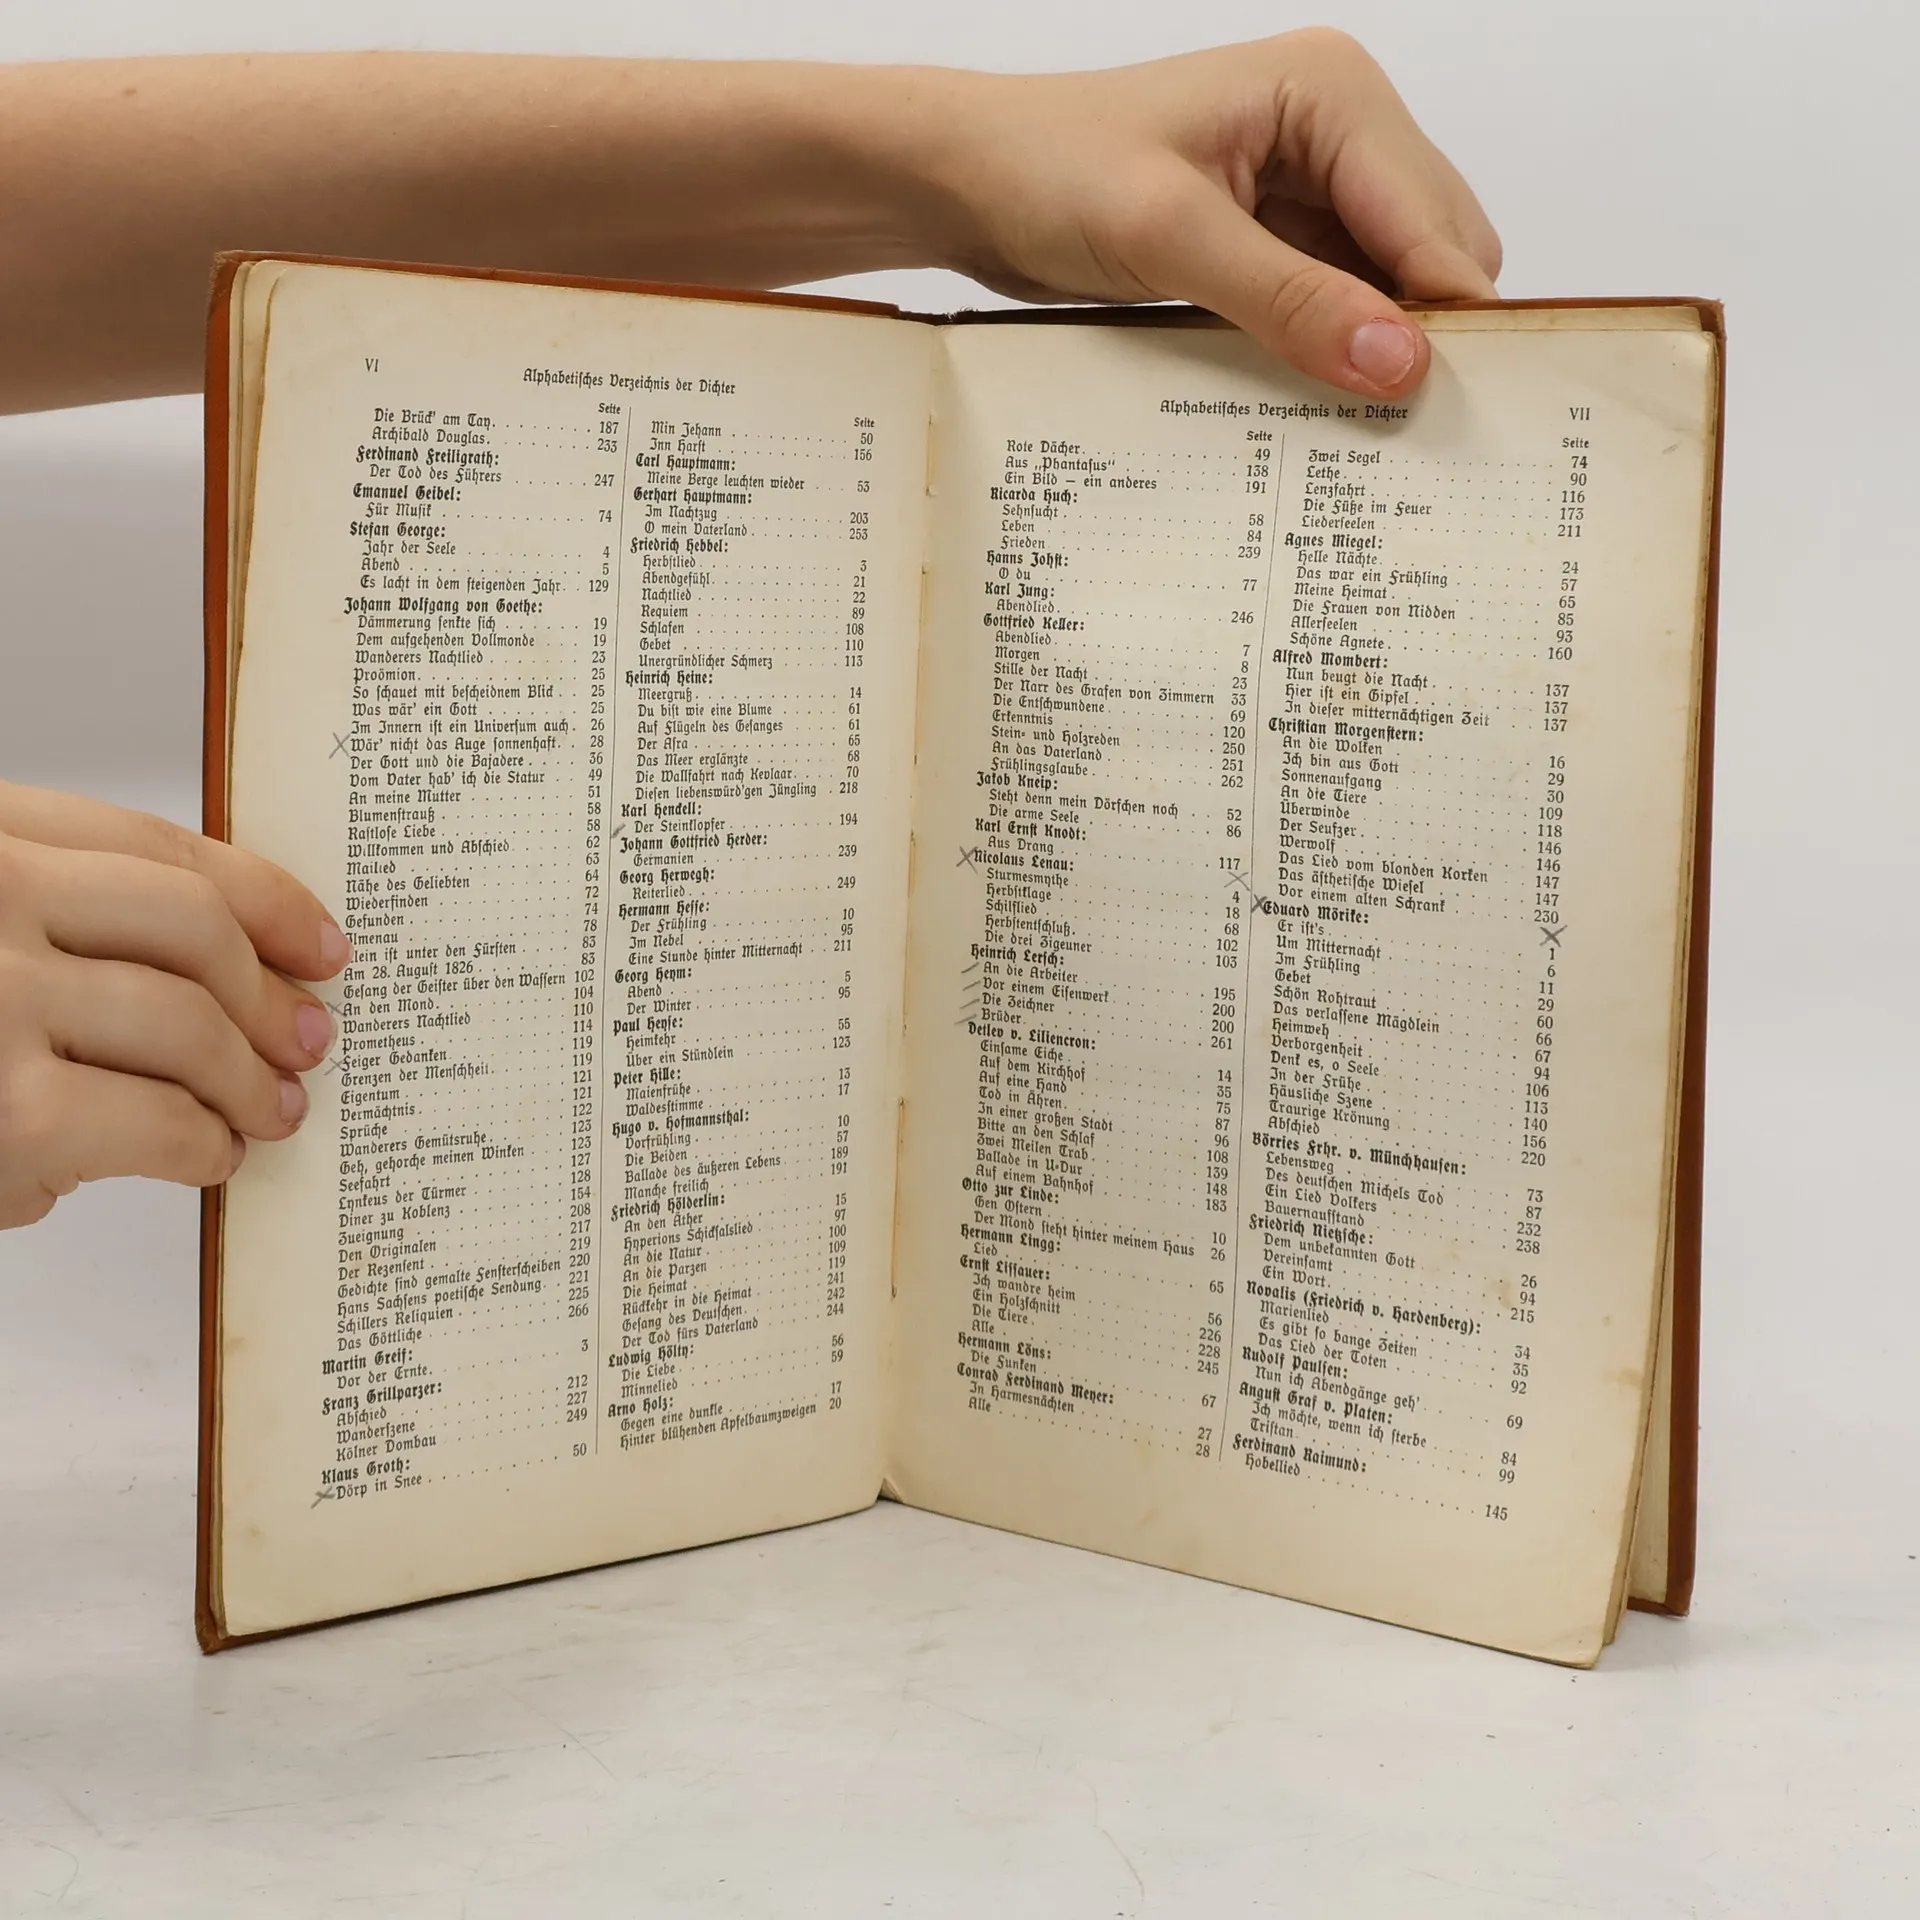 VI
Alphabetisches Verzeichnis der Dichter
Seite
Die Brück' am Tay. 187
Archibald Douglas. 233
Ferdinand Freiligrath:
Der Tod des Führers 247
Emanuel Geibel:
Für Musik 74
Stefan George:
Jahr der Seele 4
Abend 5
Es lacht in dem steigenden Jahr. 129
Johann Wolfgang von Goethe:
Dämmerung senkte sich 19
Dem aufgehenden Vollmonde 19
Wanderers Nachtlied 23
Proömion. 25
So schauet mit bescheidnem Blick 25
Was wär' ein Gott 25
Im Innern ist ein Universum auch. 26
Wär' nicht das Auge sonnenhaft. 28
Der Gott und die Bajadere 36
Vom Vater hab' ich die Statur 49
An meine Mutter 51
Blumenstrauß 58
Rastlose Liebe 58
Willkommen und Abschied 62
Mailied 63
Nähe des Geliebten 64
Wiederfinden 72
Gefunden 74
Ilmenau 78
Klein ist unter den Fürsten 83
Am 28. August 1826 83
Gesang der Geister über den Wassern 102
An den Mond. 104
Wanderers Nachtlied 110
Prometheus 114
Feiger Gedanken. 119
Grenzen der Menschheit. 119
Eigentum 121
Vermächtnis. 121
Sprüche 122
Wanderers Gemütsruhe. 123
Geh, gehorche meinen Winken 123
Seefahrt 127
Lynkeus der Türmer 128
Diner zu Koblenz 154
Zueignung 208
Den Originalen 217
Der Rezensent 219
Gedichte sind gemalte Fensterscheiben 220
Hans Sachsens poetische Sendung. 221
Schillers Reliquien 225
Das Göttliche 266
Martin Greif:
Vor der Ernte. 3
Franz Grillparzer:
Abschied 212
Wanderszene 227
Kölner Dombau 249
Klaus Groth:
Dörp in Snee 50
Seite
Min Jehann 50
Inn Harst 156
Carl Hauptmann:
Meine Berge leuchten wieder 53
Gerhart Hauptmann:
Im Nachtzug 203
O mein Vaterland 253
Friedrich Hebbel:
Herbstlied 3
Abendgefühl 21
Nachtlied 22
Requiem 89
Schlafen 108
Gebet 110
Unergründlicher Schmerz 113
Heinrich Heine:
Meergruß 14
Du bist wie eine Blume 61
Auf Flügeln des Gesanges 61
Der Asra 65
Das Meer erglänzte 68
Die Wallfahrt nach Kevlaar. 70
Diesen liebenswürd'gen Jüngling 218
Karl Henckell:
Der Steinklopfer 194
Johann Gottfried Herder:
Germanien 239
Georg Herwegh:
Reiterlied 249
Hermann Hesse:
Der Frühling 10
Im Nebel 95
Eine Stunde hinter Mitternacht 211
Georg Heym:
Abend 5
Der Winter 95
Paul Heyse:
Heimkehr 55
Über ein Stündlein 123
Peter Hille:
Maienfrühe 13
Waldesstimme 17
Hugo v. Hofmannsthal:
Vorfrühling 10
Die Beiden 57
Ballade des äußeren Lebens 189
Manche freilich 191
Friedrich Hölderlin:
An den Äther 15
Hyperions Schicksalslied 97
An die Natur 100
An die Parzen 109
Die Heimat 119
Rückkehr in die Heimat 241
Gesang des Deutschen. 242
Der Tod fürs Vaterland 244
Ludwig Hölty:
Die Liebe 56
Minnelied 59
Arno Holz:
Gegen eine dunkle 17
Hinter blühenden Apfelbaumzweigen 20
Alphabetisches Verzeichnis der Dichter
VII
Seite
Rote Dächer. 49
Aus „Phantasus“ 138
Ein Bild — ein anderes 191
Ricarda Huch:
Sehnsucht 58
Leben 84
Frieden 239
Hanns Johst:
O du 77
Karl Jung:
Abendlied 246
Gottfried Keller:
Abendlied 7
Morgen 8
Stille der Nacht 23
Der Narr des Grafen von Zimmern 33
Die Entschwundene 69
Erkenntnis 120
Stein- und Holzreden 250
An das Vaterland 251
Frühlingsglaube 262
Jakob Kneip:
Steht denn mein Dörfchen noch 52
Die arme Seele 86
Karl Ernst Knodt:
Aus Drang 117
Nicolaus Lenau:
Sturmesmythe 4
Herbstklage 18
Schilflied 68
Herbstentschluß. 102
Die drei Zigeuner 103
Heinrich Lersch:
An die Arbeiter 195
Vor einem Eisenwerk 200
Die Zeichner 200
Brüder 261
Detlev v. Liliencron:
Einsame Eiche 14
Auf dem Kirchhof 35
Auf eine Hand 75
Tod in Ähren. 87
In einer großen Stadt 96
Bitte an den Schlaf 108
Zwei Meilen Trab 139
Ballade in U-Dur 148
Auf einem Bahnhof 183
Otto zur Linde:
Gen Ostern 10
Der Mond steht hinter meinem Haus 26
Hermann Lingg:
Lied 65
Ernst Lissauer:
Ich wandre heim 56
Ein Holzschnitt 226
Die Tiere. 228
Alle 245
Hermann Löns:
Die Funken 67
Conrad Ferdinand Meyer:
In Harmesnächten 27
Alle 28
Seite
Zwei Segel 74
Lethe 90
Lenzfahrt 116
Die Füße im Feuer 173
Liederseelen 211
Agnes Miegel:
Helle Nächte. 24
Das war ein Frühling 57
Meine Heimat 65
Die Frauen von Nidden 85
Allerseelen 93
Schöne Agnete 160
Alfred Mombert:
Nun beugt die Nacht 137
Hier ist ein Gipfel 137
In dieser mitternächtigen Zeit 137
Christian Morgenstern:
An die Wolken 16
Ich bin aus Gott 29
Sonnenaufgang 30
An die Tiere 109
Überwinde 118
Der Seufzer. 146
Werwolf 146
Das Lied vom blonden Korken 147
Das ästhetische Wiesel 147
Vor einem alten Schrank 230
Eduard Mörike:
Er ist's 1
Um Mitternacht 6
Im Frühling 11
Gebet 29
Schön Rohtraut 60
Das verlassene Mägdlein 66
Heimweh 67
Verborgenheit 94
Denk es, o Seele 106
In der Frühe 113
Häusliche Szene 140
Traurige Krönung 156
Abschied 220
Börries Frhr. v. Münchhausen:
Lebensweg 73
Des deutschen Michels Tod 87
Ein Lied Volkers 232
Bauernaufstand 238
Friedrich Nietzsche:
Dem unbekannten Gott 26
Vereinsamt 94
Ein Wort. 215
Novalis (Friedrich v. Hardenberg):
Marienlied 34
Es gibt so bange Zeiten 35
Das Lied der Toten 92
Rudolf Paulsen:
Nun ich Abendgänge geh' 69
August Graf v. Platen:
Ich möchte, wenn ich sterbe 84
Tristan 99
Ferdinand Raimund:
Hobellied 145